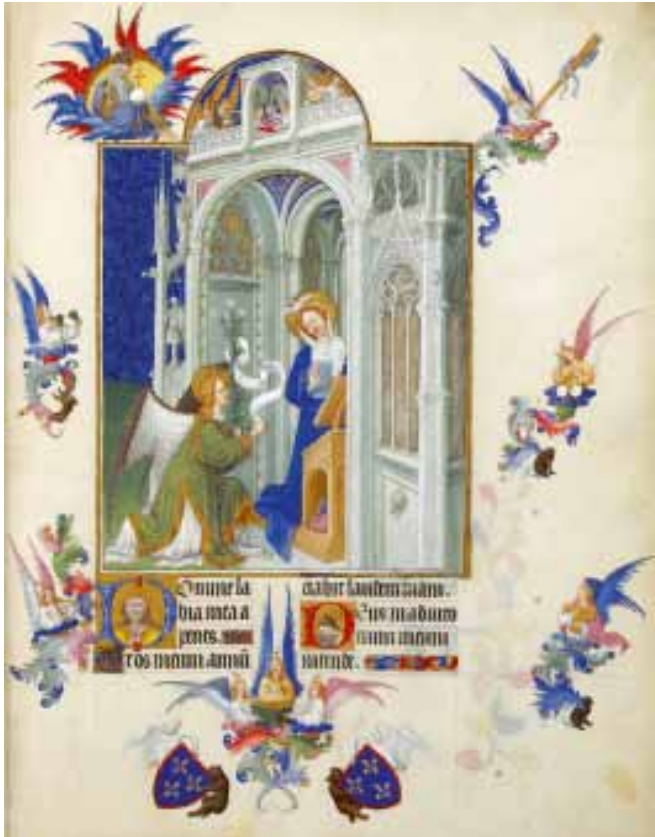 Domine la
bia mea a
peries.
Et os meum annũ
ciabit laudem tuam.
Deus in adiuto
rium meum
intende.